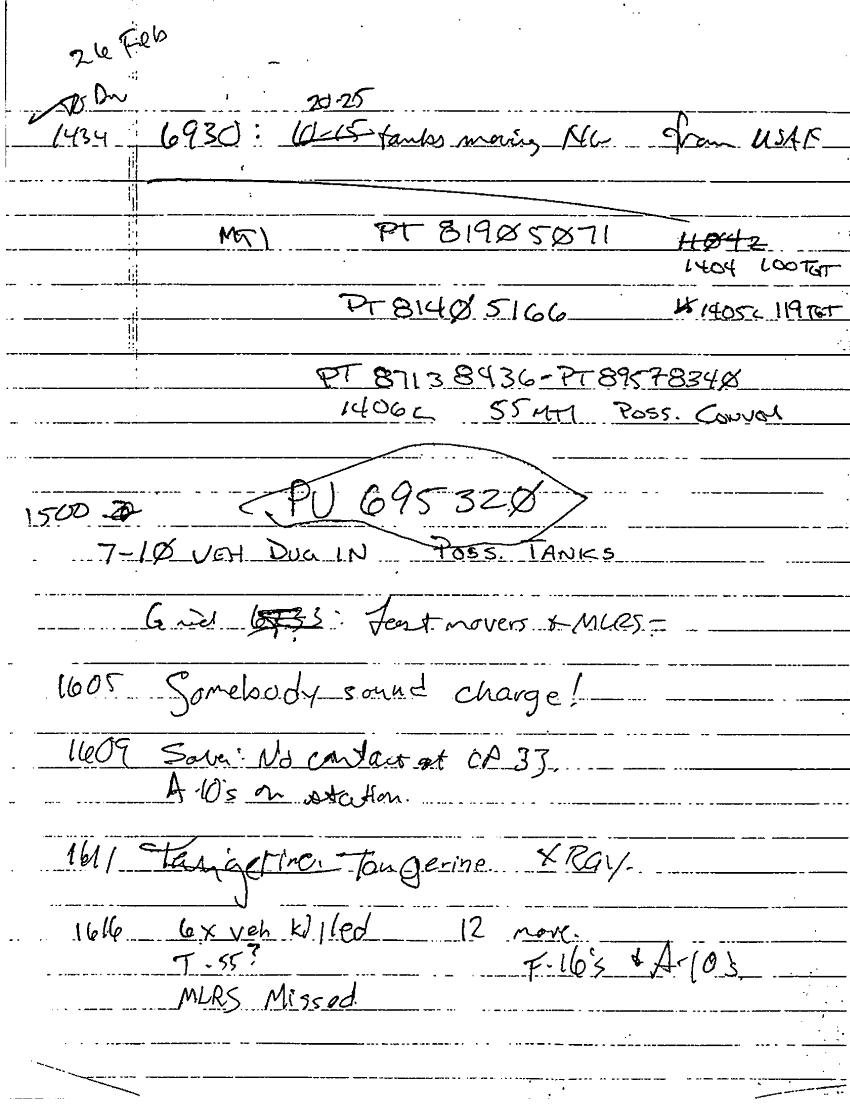 26 Feb
20-25
1434 6930: 10-15 tanks moving NE from USAF
MTI PT 819Ø5Ø71 11Ø42
1404 100 TGT
PT 814Ø 5166 1405L 119 TGT
PT 8713 8436 - PT 8957 834Ø
1406L 55 MTI Poss. Convoy
1500 PU 695 32Ø
7-1Ø VEH DUG IN Poss. TANKS
Grid : fast movers & MLRS =
1605 Somebody sound charge!
1609 No contact at CP 33.
A-10's on station.
1611 Tangerine Tangerine XRAY.
1616 6x veh killed 12 more.
T-55? F-16's & A-10's
MLRS Missed